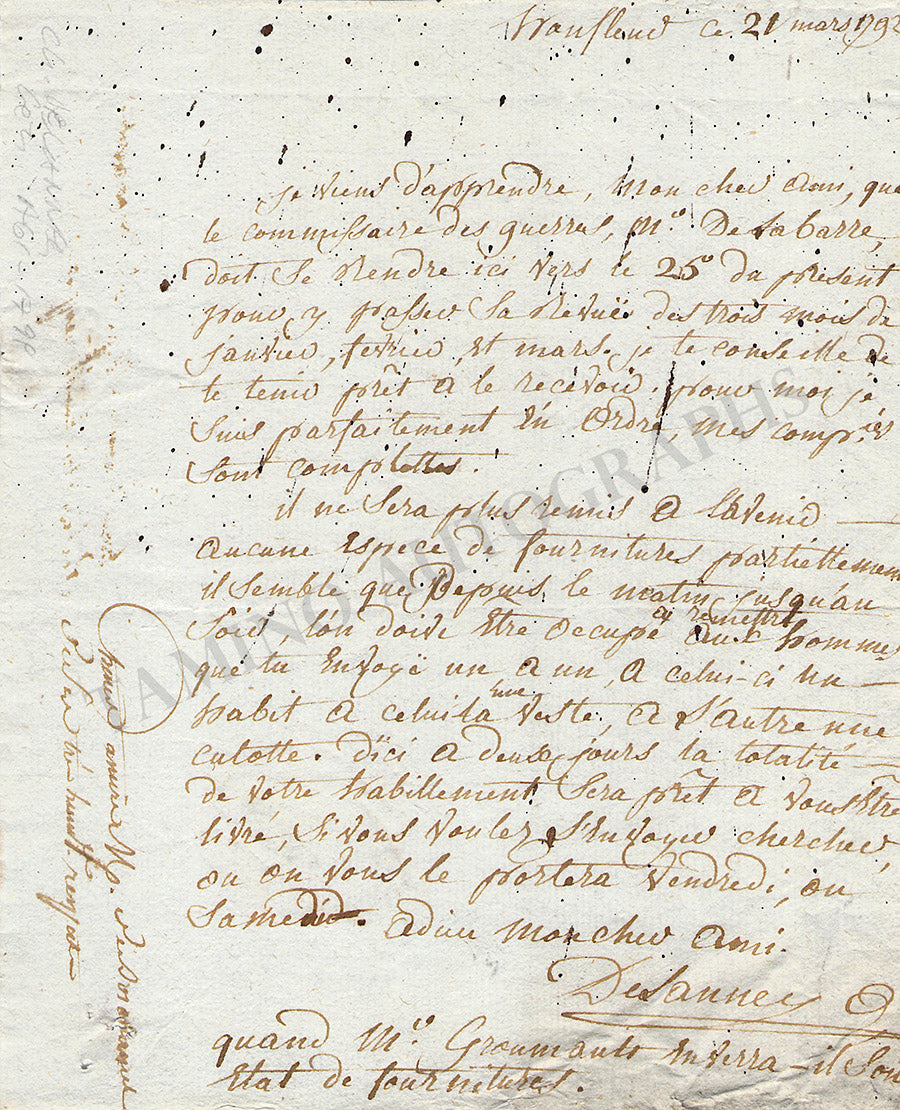 honfleur ce 21 mars 1792
je viens d'apprendre, mon cher ami, que
le commissaire des guerres, Mr. De Labarre,
doit se rendre ici vers le 25e du présent
pour y passer sa revue des trois mois de
janvier, fevrier, et mars. je te conseille de
te tenir prêt a le recevoir. pour moi je
suis parfaitement en ordre, mes comp.ies
sont complettes.
il ne sera plus remis a l'avenir
aucune espece de fournitures partiellement
il semble que depuis le matin jusqu'au
soir, l'on doive etre occupé a remettre aux hommes
que tu envoye un a un, a celui-ci un
habit a celui la une veste, a l'autre une
culotte. d'ici a deux jours la totalité
de votre habillement sera prêt a vous être
livré, si vous voulez l'envoyer chercher,
ou on vous le portera vendredi, ou
samedi. adieu mon cher ami.
DeLannoy
quand Mr. Groumault enverra-il son
etat de fournitures.
votre très humble
TAMINO AUTOGRAPHS